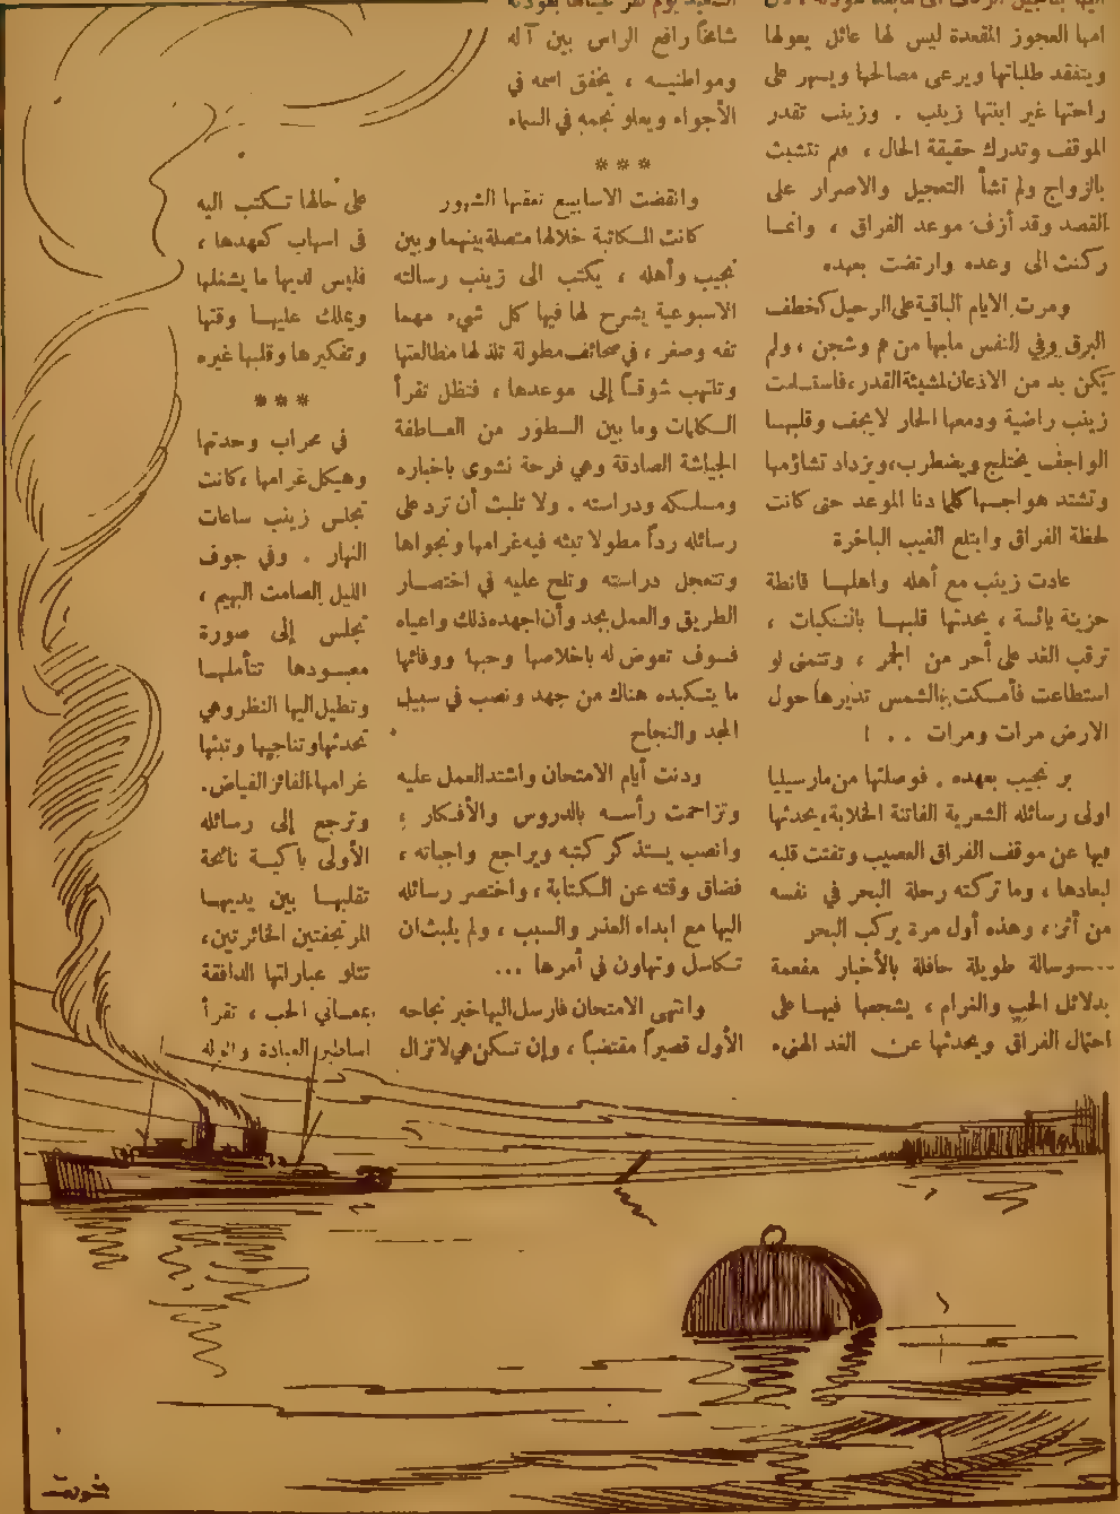 امها العجوز المقعدة ليس لها عائل يعولها
ويتفقد طلباتها ويرعى مصالحها ويسهر على
راحتها غير ابنتها زينب . وزينب تقدر
الموقف وتدرك حقيقة الحال ، فلم تتشبث
بالزواج ولم تشأ التعجيل والاصرار على
القصد وقد أزف موعد الفراق ، وانما
ركنت الى وعده وارتضت بعهده
ومرت الايام الباقية على الرحيل كخطف
البرق وفي النفس مابها من هم وشجن ، ولم
يكن بد من الاذعان لمشيئة القدر ، فاستسلمت
زينب راضية ودمعها الحار لا يجف وقلبهـا
الواجف يختلج ويضطرب ، ويزداد تشاؤمها
وتشتد هواجسها كلما دنا الموعد حتى كانت
لحظة الفراق وابتلع الغيب الباخرة
عادت زينب مع أهله واهلهـا قانطة
حزينة يائسة ، يحدثها قلبهـا بالنـكبات ،
ترقب الغد على أحر من الجمر ، وتتمنى لو
استطاعت فأمسكت بالشمس تديرها حول
الارض مرات ومرات . . !
بر نجيب بعهده . فوصلتها من مارسيليا
اولى رسائله الشعرية الفاتنة الخلابة ، يحدثها
فيها عن موقف الفراق العصيب وتفتت قلبه
لبعادها ، وما تركته رحلة البحر في نفسه
من أثر ، وهذه أول مرة يركب البحر
رسالة طويلة حافلة بالأخبار مفعمة
بدلائل الحب والغرام ، يشجعها فيهـا على
احتمال الفراق ويحدثها عن الغد الهنيء
شامخاً رافع الراس بين آله
ومواطنيـه ، يخفق اسمه في
الأجواء ويعلو نجمه في السماء
***
وانقضت الاسابيع تعقبها الشهور
كانت المـكاتبة خلالها متصلة بينهما وبين
نجيب وأهله ، يكتب الى زينب رسالته
الاسبوعية يشرح لها فيها كل شيء مهما
تفه وصغر ، في صحائف مطولة تلذ لها مطالعتها
وتلتهب شوقـاً إلى موعدها ، فتظل تقرأ
الـكلمات وما بين السطور من العـاطفة
الجياشة الصادقة وهي فرحة نشوى باخباره
ومسلـكه ودراسته . ولا تلبث أن ترد على
رسائله رداً مطولا تبثه فيه غرامها ونجواها
وتتعجل دراسته وتلح عليه في اختصـار
الطريق والعمل بجد وأن اجهده ذلك واعياه
فـسوف تعوض له باخلاصها وحبها ووفائها
ما يتـكبده هناك من جهد ونصب في سبيل
المجد والنجاح
ودنت أيام الامتحان واشتد العمل عليه
وتزاحمت رأسـه بالدروس والأفـكار ؛
وانصب يسـتذكر كتبه ويراجع واجباته ،
فضاق وقته عن الـكتابة ، واختصر رسائله
اليها مع ابداء العذر والسبب ، ولم يلبث ان
تـكاسل وتهاون في أمرها ...
وانتهى الامتحان فارسل اليها خبر نجاحه
الأول قصيراً مقتضباً ، وإن تـكن هي لاتزال
على حالها تـكتب اليه
فى اسهاب كعهدها ،
فليس لديها ما يشغلها
ويملك عليهـا وقتها
وتفكيرها وقلبها غيره
***
في محراب وحدتها
وهيكل غرامها ، كانت
تجلس زينب ساعات
النهار . وفي جوف
الليل الصامت البهيم ،
تجلس إلى صورة
معبـودها تتأملهـا
وتطيل اليها النظر وهي
تحدثها وتناجيها وتبثها
غرامها الفائر الفياض.
وترجع إلى رسائله
الأولى باكيـة نائحة
تقلبهـا بين يديهـا
المرتجفتين الحائرتين،
تتلو عباراتها الدافقة
بمعـاني الحب ، تقرأ
اساطير العبادة والوله